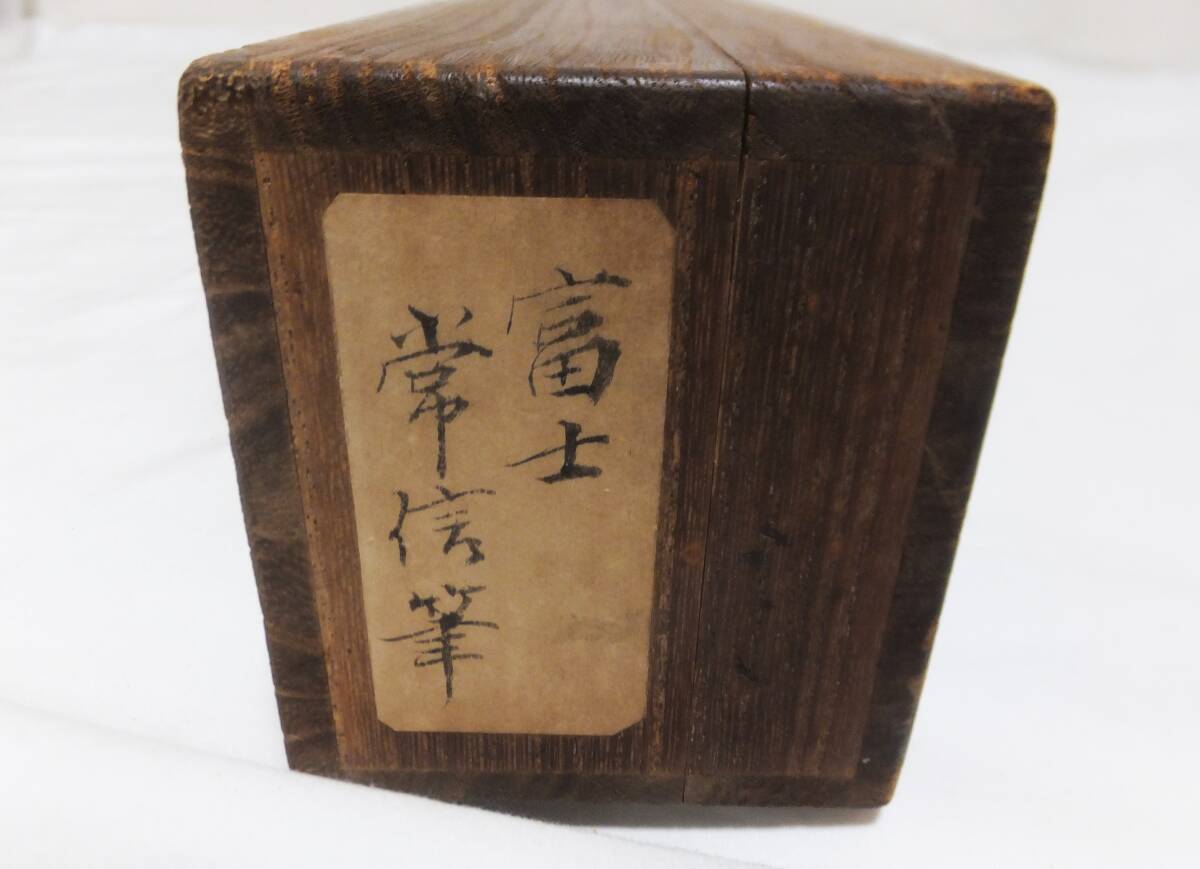 富士
常信筆